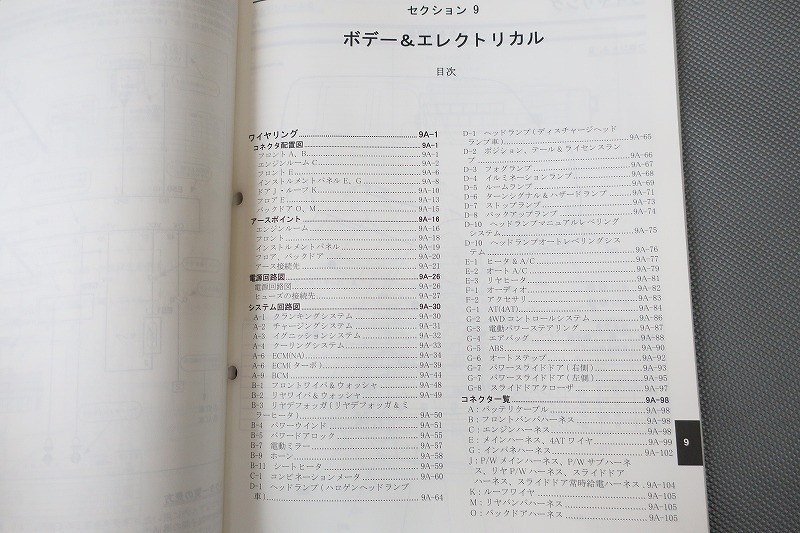 セクション 9
ボデー＆エレクトリカル
目次
ワイヤリング 9A-1
コネクタ配置図 9A-1
フロント A、B 9A-1
エンジンルーム C 9A-2
フロント E 9A-6
インストルメントパネル E、G 9A-8
ドア J・ルーフ K 9A-10
フロア E 9A-13
バックドア O、M 9A-15
アースポイント 9A-16
エンジンルーム 9A-16
フロント 9A-18
インストルメントパネル 9A-19
フロア、バックドア 9A-20
アース接続先 9A-21
電源回路図 9A-26
電源回路図 9A-26
ヒューズの接続先 9A-27
システム回路図 9A-30
A-1 クランキングシステム 9A-30
A-2 チャージングシステム 9A-31
A-3 イグニッションシステム 9A-32
A-4 クーリングシステム 9A-33
A-6 ECM(NA) 9A-34
A-6 ECM( ターボ ) 9A-39
A-9 BCM 9A-44
B-1 フロントワイパ＆ウォッシャ 9A-48
B-2 リヤワイパ＆ウォッシャ 9A-49
B-3 リヤデフォッガ ( リヤデフォッガ＆ミ
ラーヒータ ) 9A-50
B-4 パワーウインド 9A-51
B-5 パワードアロック 9A-55
B-7 電動ミラー 9A-57
B-9 ホーン 9A-58
B-11 シートヒータ 9A-59
C-1 コンビネーションメータ 9A-60
D-1 ヘッドランプ ( ハロゲンヘッドランプ
車 ) 9A-64
D-1 ヘッドランプ ( ディスチャージヘッド
ランプ車 ) 9A-65
D-2 ポジション、テール＆ライセンスラン
プ 9A-66
D-3 フォグランプ 9A-67
D-4 イルミネーションランプ 9A-68
D-5 ルームランプ 9A-69
D-6 ターンシグナル＆ハザードランプ 9A-71
D-7 ストップランプ 9A-73
D-8 バックアップランプ 9A-74
D-10 ヘッドランプマニュアルレベリング
システム 9A-75
D-10 ヘッドランプオートレベリングシス
テム 9A-76
E-1 ヒータ＆A/C 9A-77
E-2 オート A/C 9A-79
E-3 リヤヒータ 9A-81
F-1 オーディオ 9A-82
F-2 アクセサリ 9A-83
G-1 AT(4AT) 9A-84
G-2 4WD コントロールシステム 9A-86
G-3 電動パワーステアリング 9A-87
G-4 エアバッグ 9A-88
G-5 ABS 9A-90
G-6 オートステップ 9A-92
G-7 パワースライドドア ( 右側 ) 9A-93
G-7 パワースライドドア ( 左側 ) 9A-95
G-8 スライドドアクローザ 9A-97
コネクター覧 9A-98
A：バッテリケーブル 9A-98
B：フロントバンパハーネス 9A-98
C：エンジンハーネス 9A-98
E：メインハーネス、4AT ワイヤ 9A-99
G：インパネハーネス 9A-102
J：P/W メインハーネス、P/W サブハーネ
ス、リヤ P/W ハーネス、スライドドア
ハーネス、スライドドア常時給電ハーネス 9A-104
K：ルーフワイヤ 9A-105
M：リヤバンパハーネス 9A-105
O：バックドアハーネス 9A-105
9